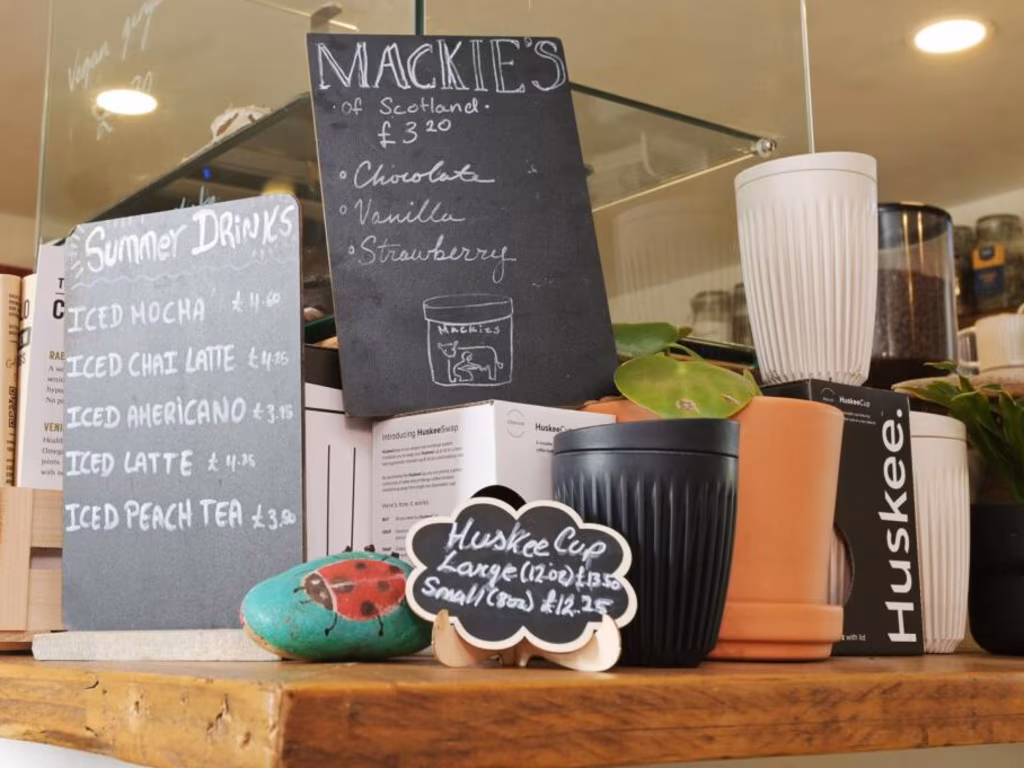 Vegan
MACKIE'S
of Scotland
£3 20
Chocolate
Vanilla
Strawberry
Mackies
Summer DRiNKS
ICED MOCHA £4.60
ICED CHAI LATTE £4.25
ICED AMERICANO £3.95
ICED LATTE £4.25
ICED PEACH TEA £3.50
Introducing HuskeeSwap
Here's how it works
HuskeeCup
Huskee.
with lid
Huskee Cup
Large (12oz) £13.50
Small (8oz) £12.25